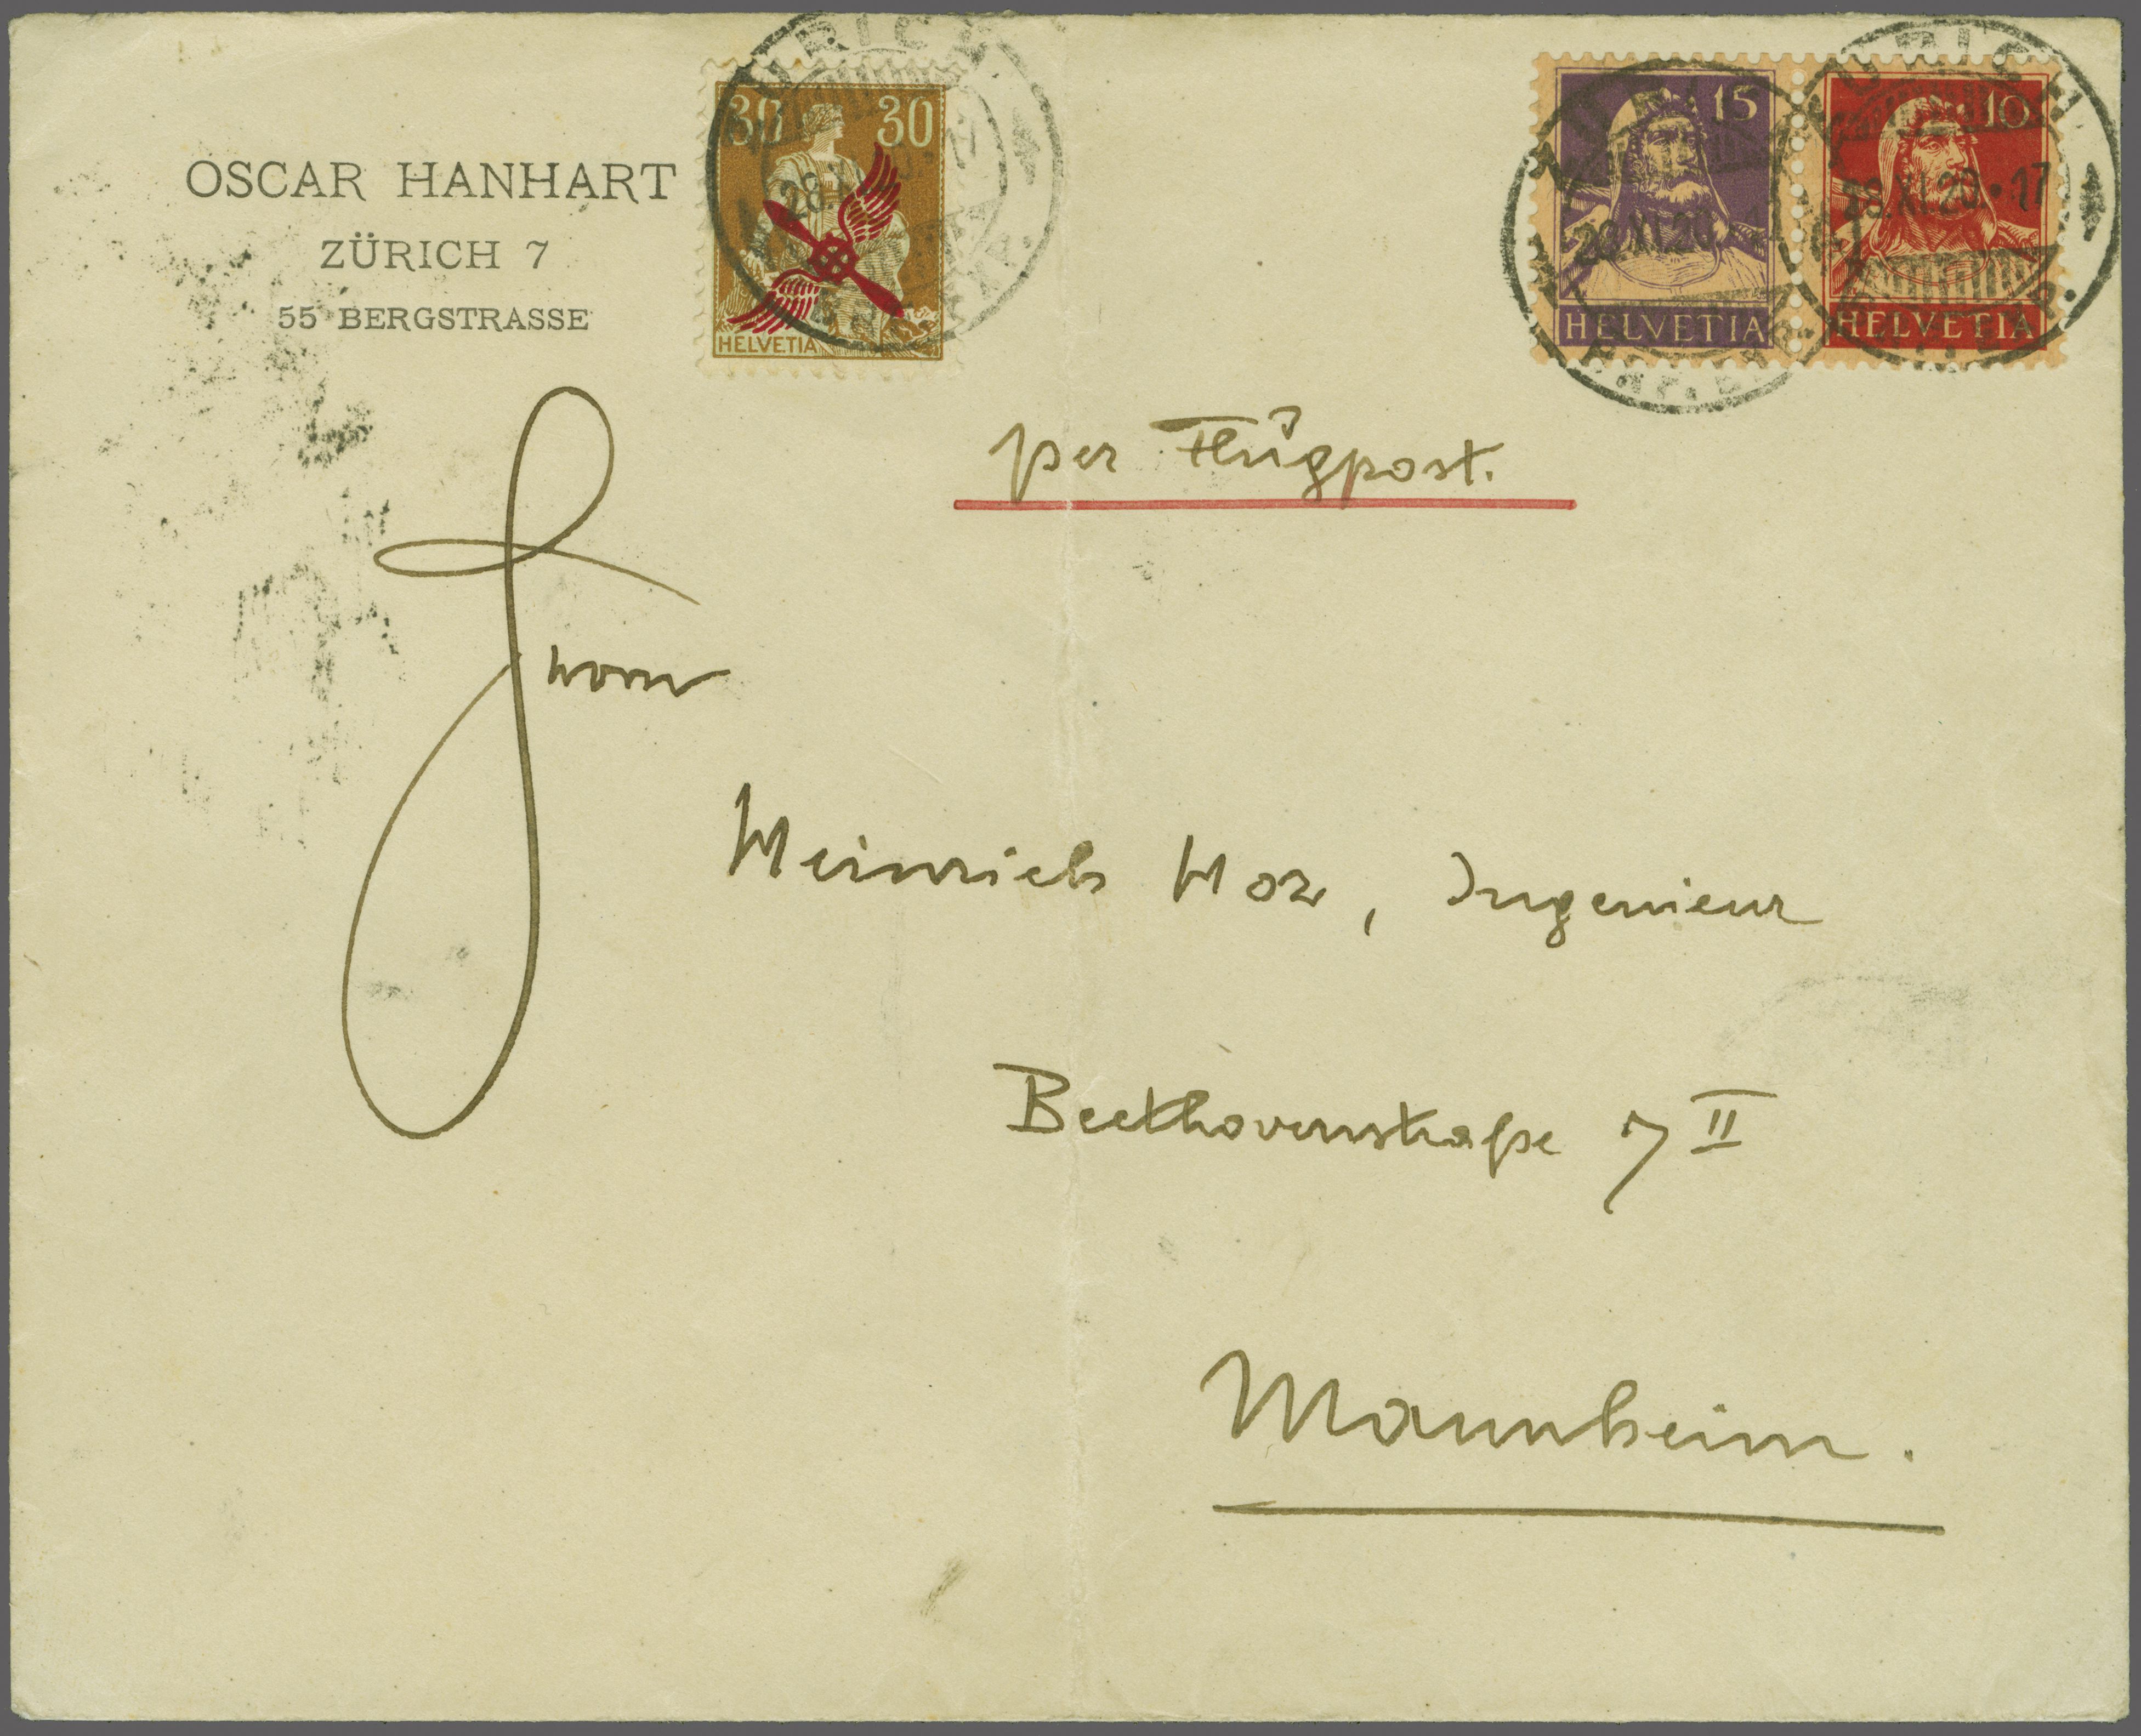 OSCAR HANHART
ZÜRICH 7
55 BERGSTRASSE
30 30
HELVETIA
15
HELVETIA
10
HELVETIA
ZÜRICH
28.XI.20.•17
per Flugpost.
Herrn
Heinrich Hoz, Ingenieur
Beethovenstraße 7 II
Mannheim.